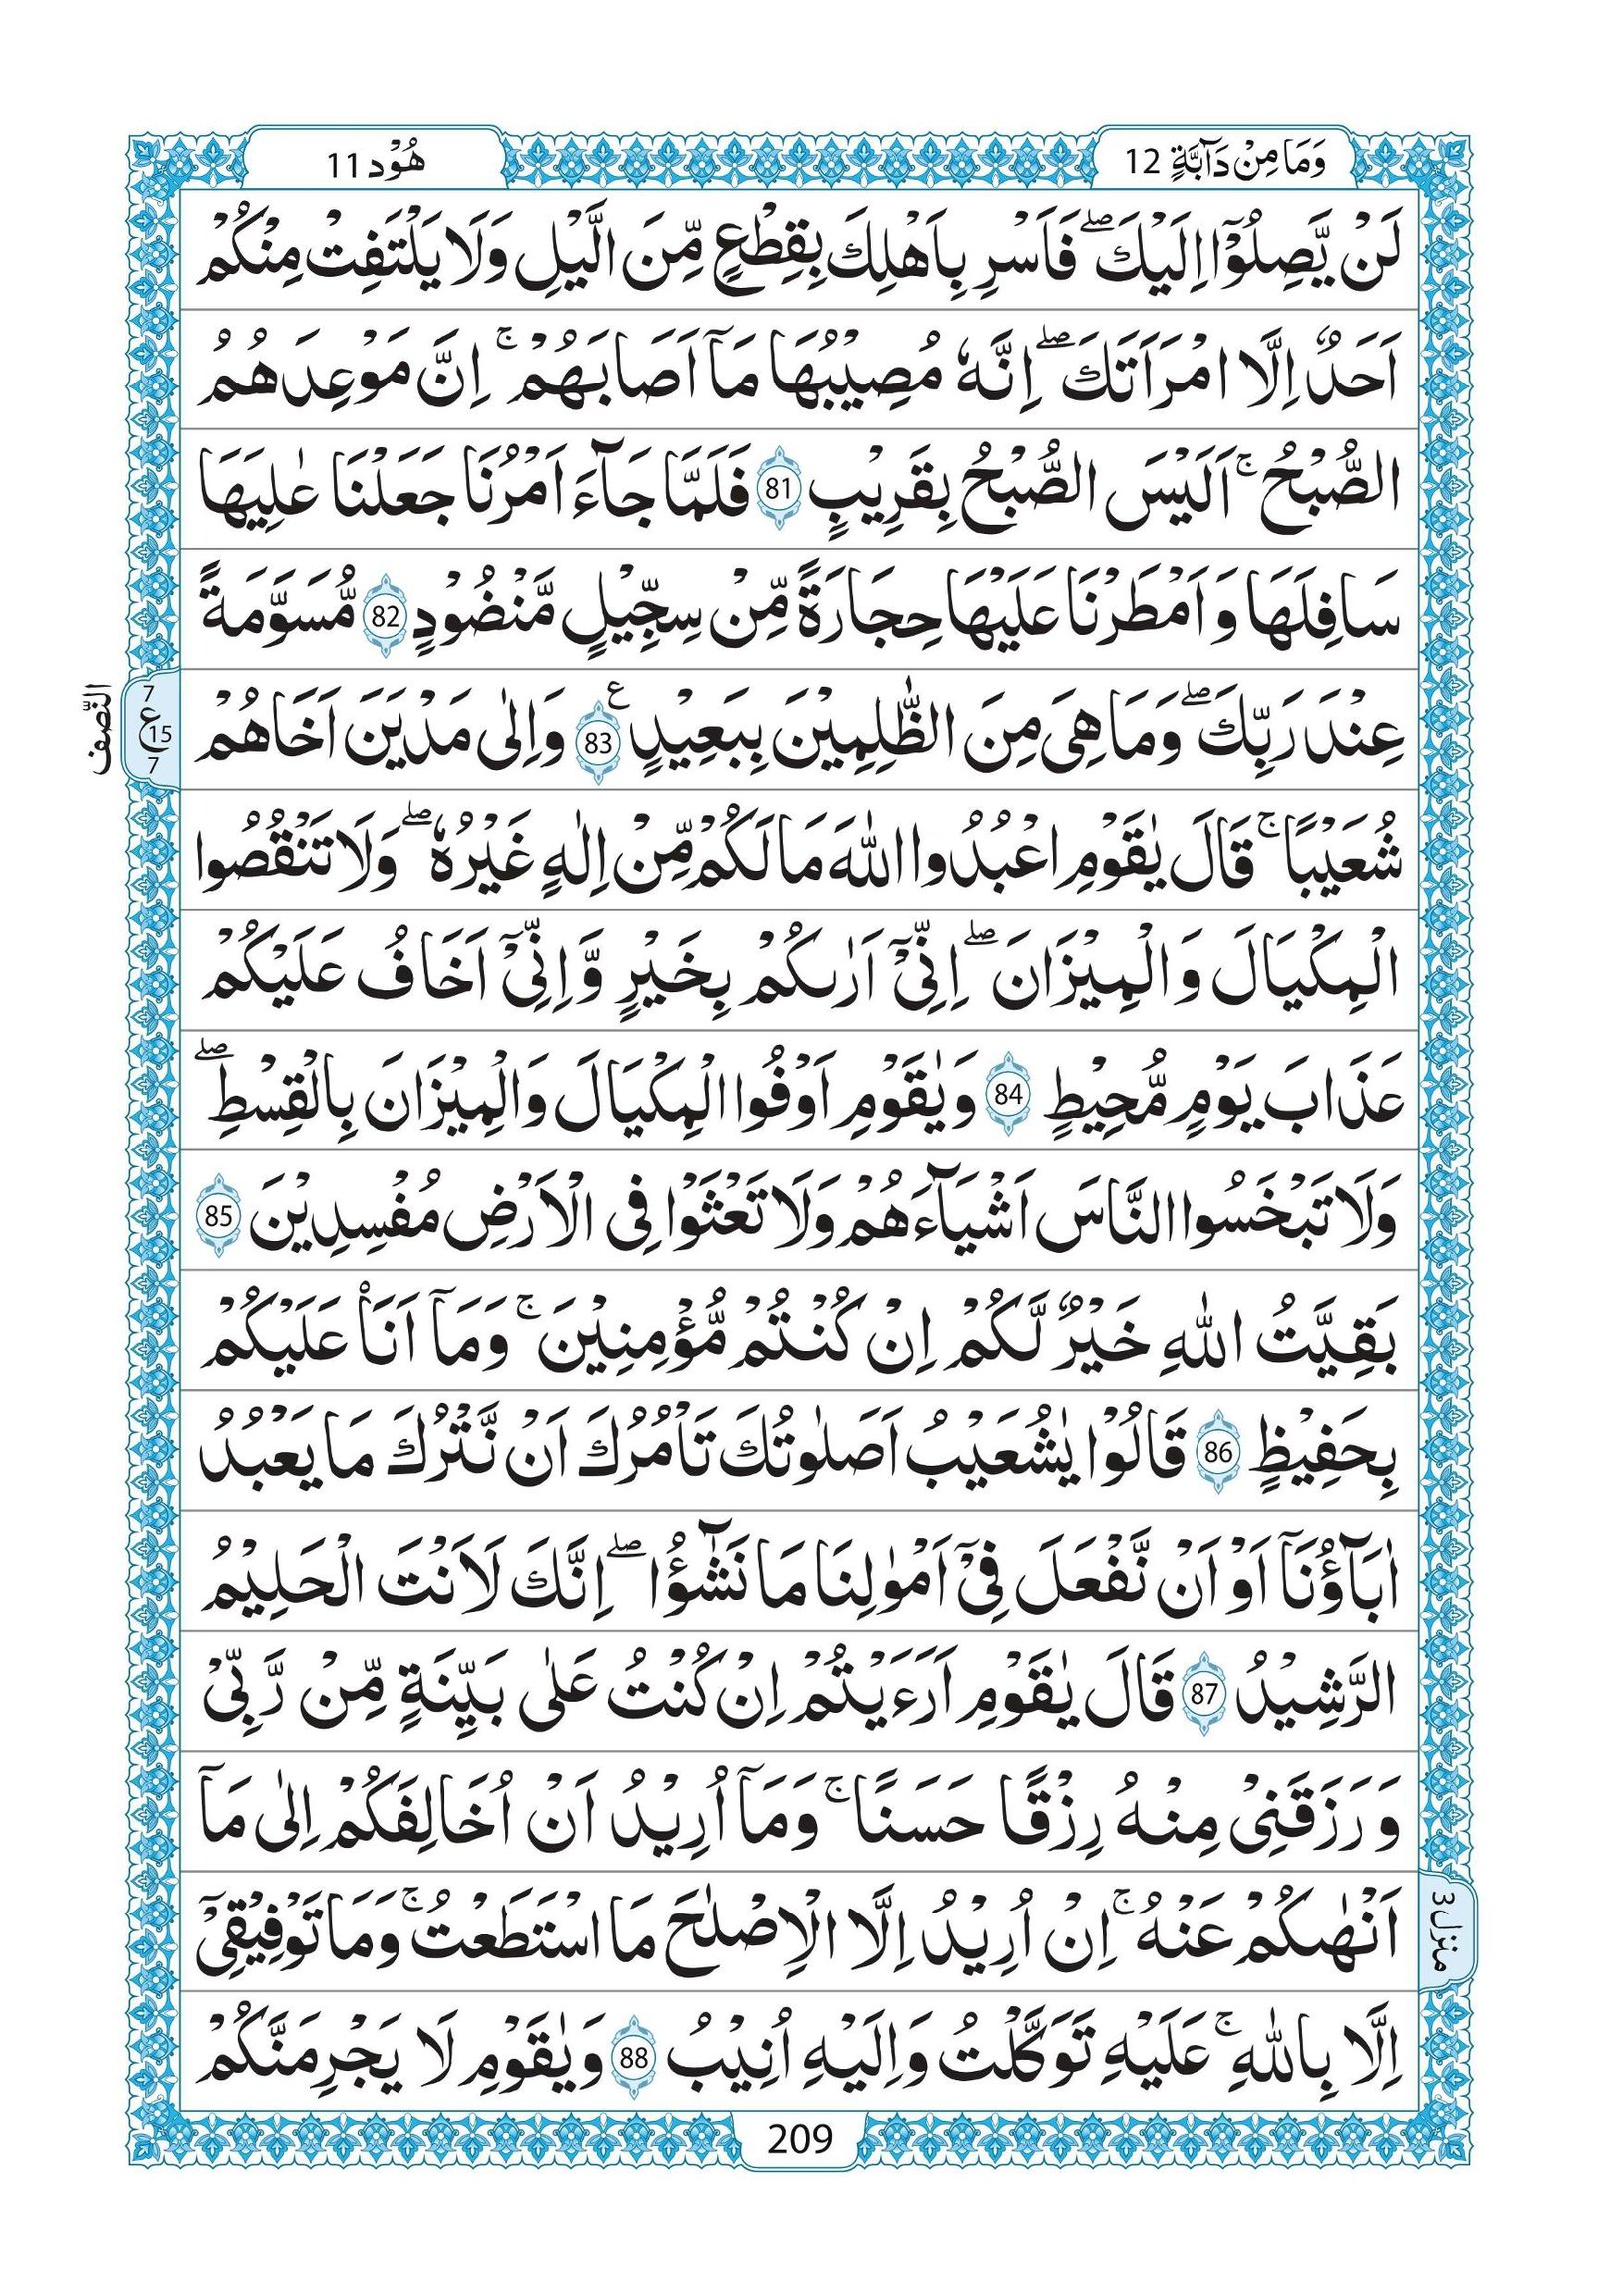 وَمَا مِنْ دَآبَّةٍ 12
هُوْد 11
لَنْ يَّصِلُوْۤا اِلَيْكَ ۖ فَاَسْرِ بِاَهْلِكَ بِقِطْعٍ مِّنَ الَّيْلِ وَلَا يَلْتَفِتْ مِنْكُمْ
اَحَدٌ اِلَّا امْرَاَتَكَ ۖ اِنَّهٗ مُصِيْبُهَا مَاۤ اَصَابَهُمْ ۚ اِنَّ مَوْعِدَهُمُ
الصُّبْحُ ۚ اَلَيْسَ الصُّبْحُ بِقَرِيْبٍ 81 فَلَمَّا جَآءَ اَمْرُنَا جَعَلْنَا عٰلِيَهَا
سَافِلَهَا وَاَمْطَرْنَا عَلَيْهَا حِجَارَةً مِّنْ سِجِّيْلٍ مَّنْضُوْدٍ 82 مُّسَوَّمَةً
عِنْدَ رَبِّكَ ۖ وَمَا هِىَ مِنَ الظّٰلِمِيْنَ بِبَعِيْدٍ ع 83 وَاِلٰى مَدْيَنَ اَخَاهُمْ
النّصف
7 ع 15 7
شُعَيْبًا ۚ قَالَ يٰقَوْمِ اعْبُدُوا اللّٰهَ مَا لَكُمْ مِّنْ اِلٰهٍ غَيْرُهٗ ۖ وَلَا تَنْقُصُوا
الْمِكْيَالَ وَالْمِيْزَانَ ۖ اِنِّىْۤ اَرٰىكُمْ بِخَيْرٍ وَّاِنِّىْۤ اَخَافُ عَلَيْكُمْ
عَذَابَ يَوْمٍ مُّحِيْطٍ 84 وَيٰقَوْمِ اَوْفُوا الْمِكْيَالَ وَالْمِيْزَانَ بِالْقِسْطِ ۖ
وَلَا تَبْخَسُوا النَّاسَ اَشْيَآءَهُمْ وَلَا تَعْثَوْا فِى الْاَرْضِ مُفْسِدِيْنَ 85
بَقِيَّتُ اللّٰهِ خَيْرٌ لَّكُمْ اِنْ كُنْتُمْ مُّؤْمِنِيْنَ ۚ وَمَاۤ اَنَا۠ عَلَيْكُمْ
بِحَفِيْظٍ 86 قَالُوْا يٰشُعَيْبُ اَصَلٰوتُكَ تَاْمُرُكَ اَنْ نَّتْرُكَ مَا يَعْبُدُ
اٰبَآؤُنَاۤ اَوْ اَنْ نَّفْعَلَ فِىْۤ اَمْوٰلِنَا مَا نَشٰٓؤُا ۖ اِنَّكَ لَاَنْتَ الْحَلِيْمُ
الرَّشِيْدُ 87 قَالَ يٰقَوْمِ اَرَءَيْتُمْ اِنْ كُنْتُ عَلٰى بَيِّنَةٍ مِّنْ رَّبِّىْ
وَرَزَقَنِىْ مِنْهُ رِزْقًا حَسَنًا ۚ وَمَاۤ اُرِيْدُ اَنْ اُخَالِفَكُمْ اِلٰى مَاۤ
اَنْهٰىكُمْ عَنْهُ ۚ اِنْ اُرِيْدُ اِلَّا الْاِصْلٰحَ مَا اسْتَطَعْتُ ۚ وَمَا تَوْفِيْقِىْۤ
منزل 3
اِلَّا بِاللّٰهِ ۚ عَلَيْهِ تَوَكَّلْتُ وَاِلَيْهِ اُنِيْبُ 88 وَيٰقَوْمِ لَا يَجْرِمَنَّكُمْ
209